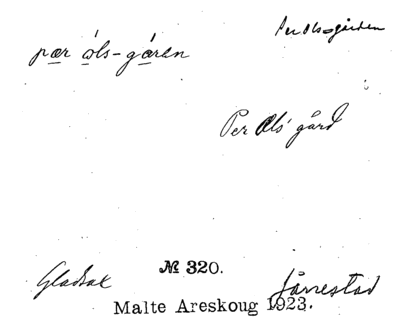 Per Ols-gården
pær ols-gåren
Per Ols' gård
№ 320.
Gladsax
Järrestad
Malte Areskoug 1923.